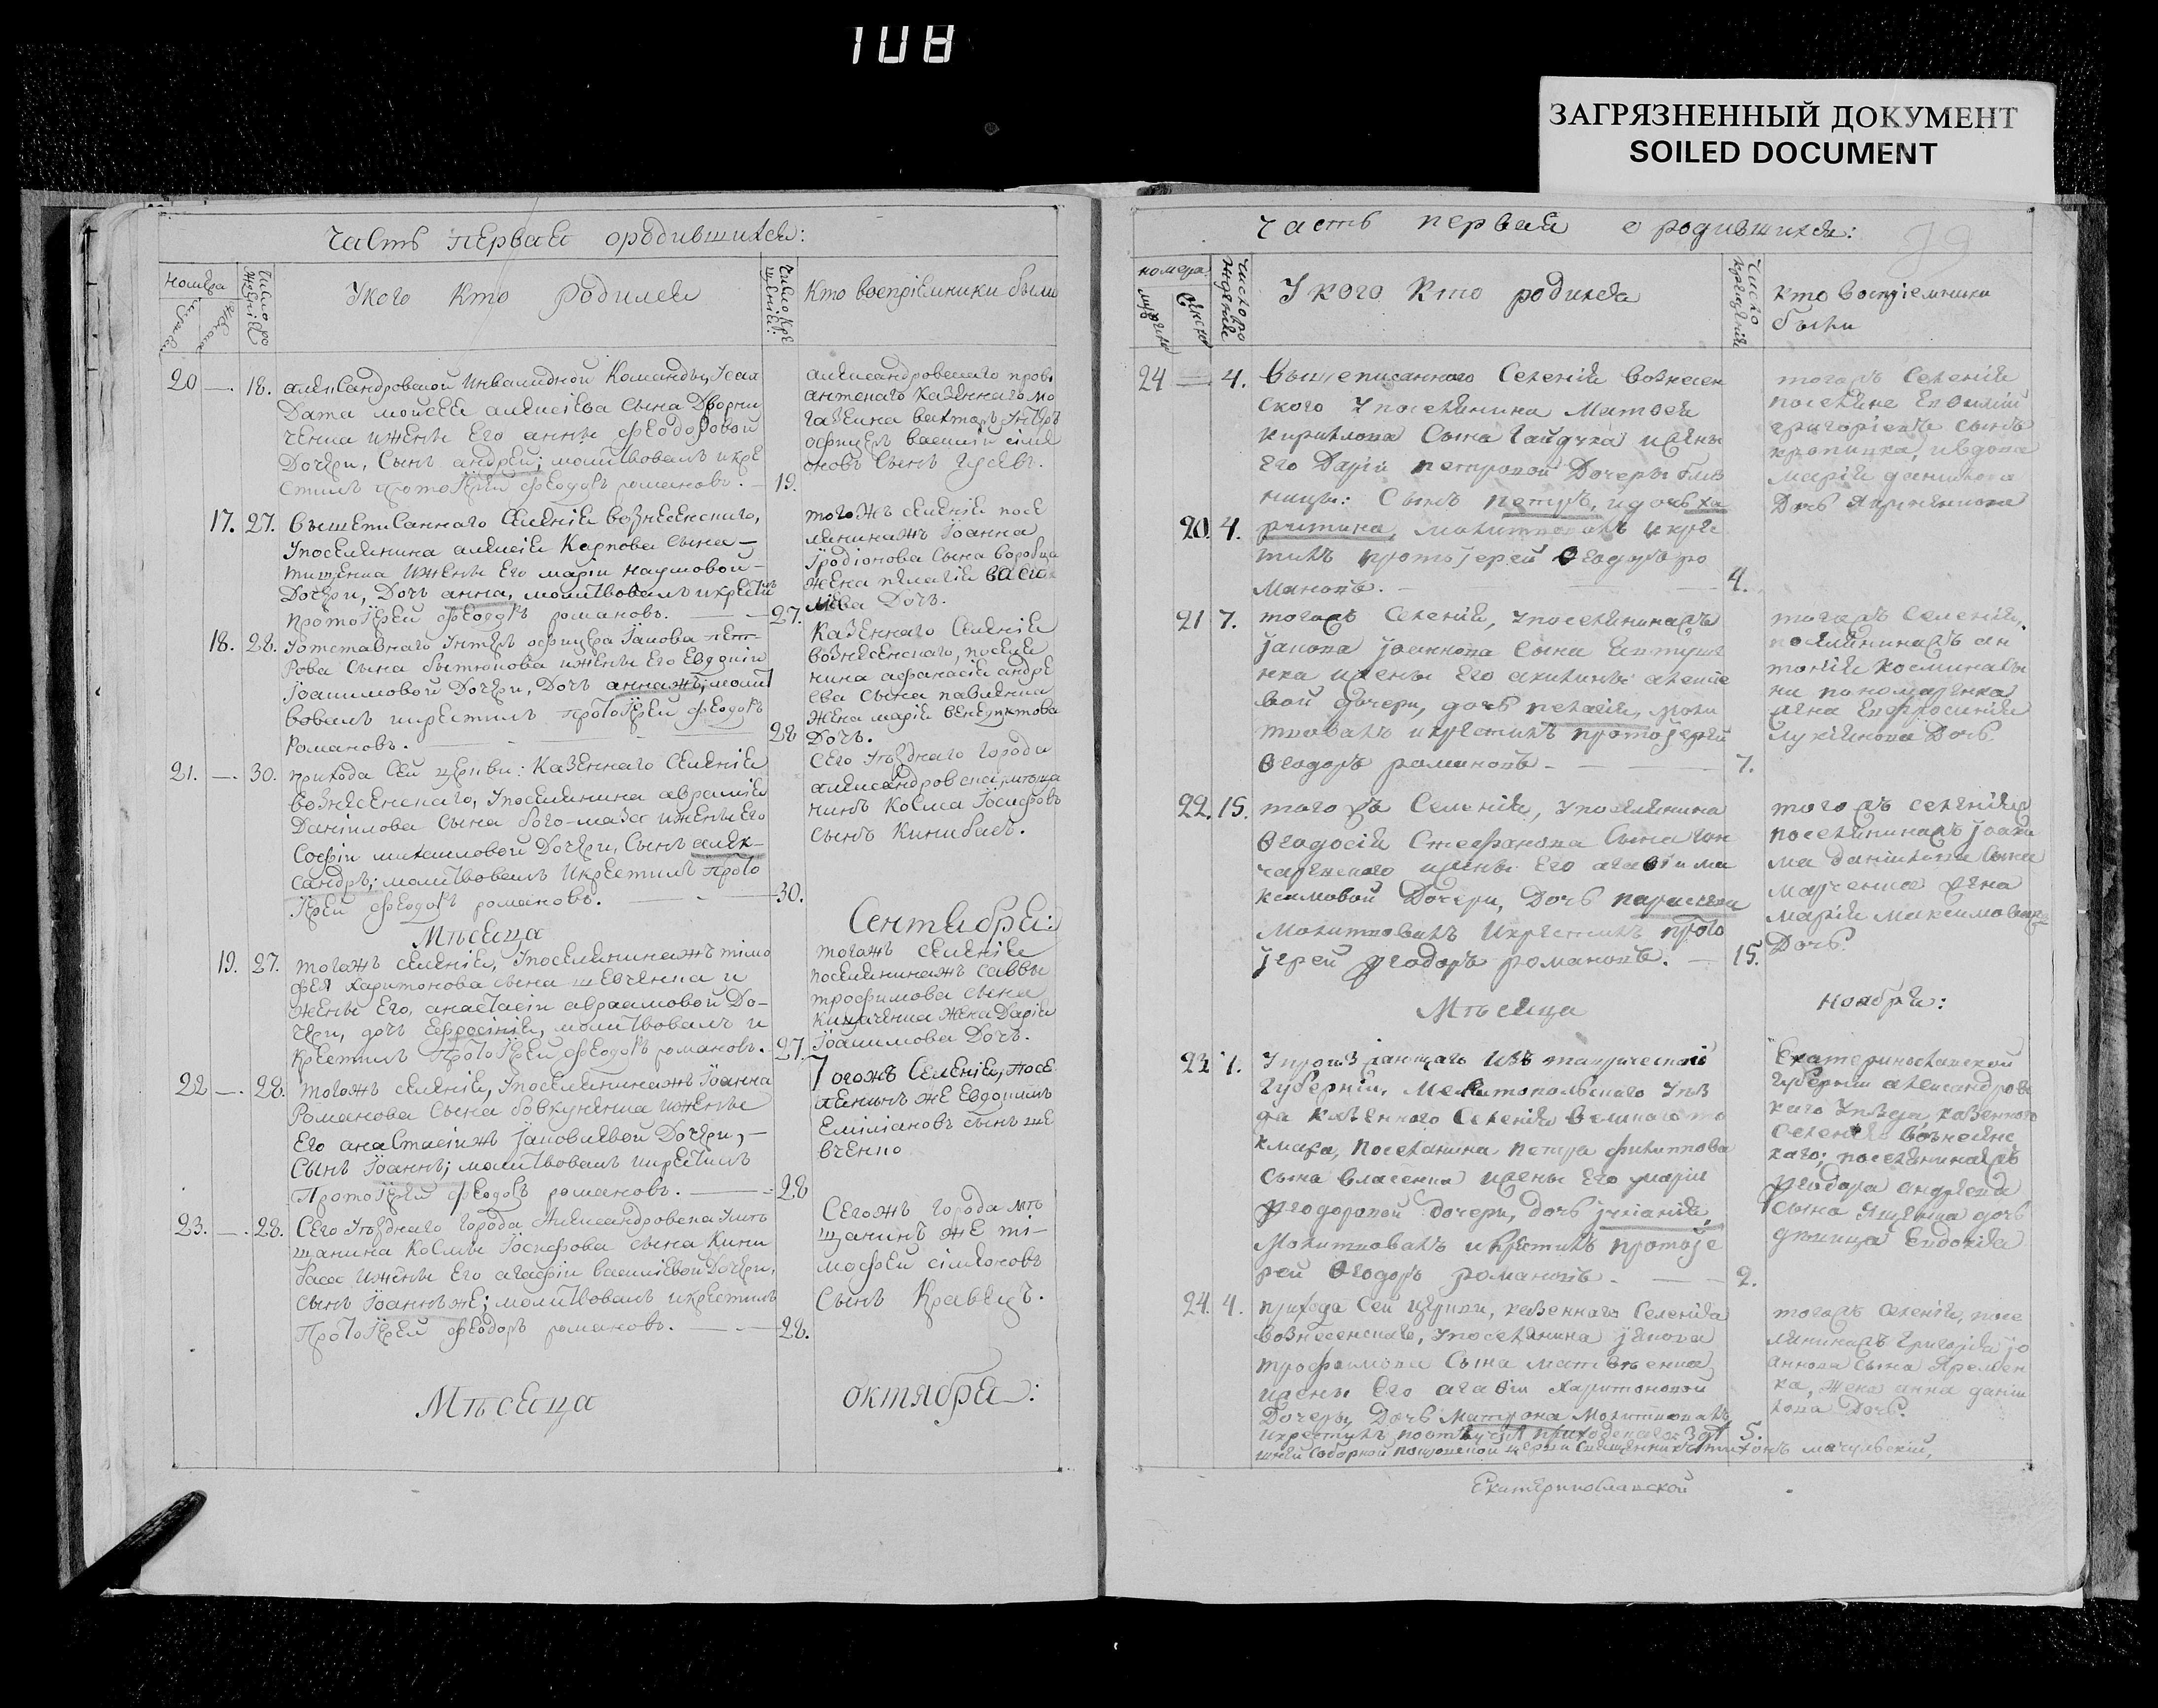 108
ЗАГРЯЗНЕННЫЙ ДОКУМЕНТ
SOILED DOCUMENT
Часть первая о родившихся:
Номера
У кого кто родился
Кто воспрiемники были
20 — 18. александровской Инвалидной Команды, Усол
Дата моисея алексiева сына Дворни
ченка и жены Его анны феодоровой
Дочери, Сынъ андрей; молитвовалъ и кре
стилъ протоiерей феодоръ романовъ. 19.
александровскаго прові
антскаго Казеннаго ма
газеина вахтеръ Унтеръ
офицеръ василiй сіме
оновъ Сынъ Гусевъ.
17. 27. Вышеписаннаго Селенiя вознесенскаго,
Упоселянина алексiя Карпова Сына
тищенка и жены Его марiи наумовой
Дочери, Дочь анна, молитвовалъ и крестилъ
протоiерей феодоръ романовъ. 27.
тогожъ селенiя посе
лянинажъ Iоанна
Iродiонова Сына воробца
жена пелагiя васи
лiева Дочь.
18. 28. Уотставнаго Унтеръ офицера Iакова пет
рова сына бытюкова и жены Его Евдокiи
Iоакимовой Дочери, Дочь аннажъ; молит
вовалъ и крестилъ протоiерей феодоръ
Романовъ. 28
Казеннаго Селенiя
вознесенскаго, поселя
нина афанасiя андре
ева сына павленка
жена марiя венедиктова
Дочь.
21. — 30. прихода сей церкви: Казеннаго Селенiя
вознесенскаго, Упоселянина аврамiя
Данiилова Сына бого-маза и жены Его
Софiи михаиловой Дочери, Сынъ алек-
сандръ; молитвовалъ и крестилъ прото
iерей феодоръ романовъ. 30.
Сего Уѣзднаго Города
александровска, мѣща
нинъ Косма Iосифовъ
сынъ Кинибасъ.
Мѣсяца Сентября:
19. 27. тогожъ селенiя, Упоселянинажъ тімо
фея Харитонова сына шевченка и
жены Его, анастасiи авраамовой До-
чери, дочь Ефросiнiя, молитвовалъ и
крестилъ протоiерей феодоръ романовъ. 27.
тогожъ селенiя
поселянинажъ саввы
трофимова сына
жена Дарiя
Iоакимова Дочь.
22 — 28. тогожъ селенiя, Упоселянинажъ Iоанна
Романова сына бовкуненка и жены
Его анастасiижъ Iаковлевой Дочери,
Сынъ Iоаннъ; молитвовалъ и крестилъ
Протоiерей феодоръ романовъ. 28
Тогожъ Селенiя, посе
лянинъ же Евдокимъ
Емілiановъ сынъ ше
вченко
23. — 28. Сего Уѣзднаго города александровска Умѣ
щанина Космы Iосифова сына Кини
баса и жены Его агафiи василiевой Дочери,
Сынъ Iоаннъ же; молитвовалъ и крестилъ
Протоiерей феодоръ романовъ. 28.
Сегожъ города мѣ
щанинъ же ті-
мофей сімеоновъ
Сынъ Кравецъ.
Мѣсяца октября:
часть первая о родившихся:
99
номера
У кого кто родился
кто воспрiемники
были
24 — 4. Вышеписанного Селенiя вознесен
ского Упоселянина Матфея
кирилова Сына гайдука и жены
Его Дарiи петровой Дочеры близ
ницы: Сынъ петръ, и дочь ха
20. 4. ритина, молитвовалъ и крес
тилъ протоiерей Феодоръ ро
мановъ. 4.
тогожъ Селенiя
григорiевъ сынъ
Дочь
21 7. тогожъ Селенiя, Упоселянинажъ
Iакова Iоаннова Сына
нка и жены Его акилины алексiе
вой дочери, дочь пелагiя, моли
твовалъ и крестилъ протоiерей
Феодоръ романовъ. 7.
тогожъ Селенiя,
поселянинажъ ан
тонiя космина сы
на пономаренка
жена Евфросинiя
лукiянова Дочь.
22. 15. тогожъ Селенiя, Упоселянина
Феодосiя Стефанова Сына гон
чаренкого и жены Его агафiи ма
ксимовой Дочери, Дочь параскева
молитвовалъ и крестилъ прото
iерей феодоръ романовъ. 15.
тогожъ селенiя
поселянинажъ Iоаки
ма данiилова Сына
марченка жена
Марiя Максимова
Дочь.
Мѣсяца ноября:
23 1. Упроизжающаго изъ таврической
Губернiи, Мелитопольского Уѣз
да казенного Селенiя великого то
кмака, поселянина петра филиппова
сына власенка и жены Его марiи
феодоровой дочери, дочь Iулiанiя,
молитвовалъ и крестилъ протоiе
рей Феодоръ романовъ. 2.
Екатеринославской
Губернiи александровс
каго Уѣзда, казенного
Селенiя вознесенс
каго; поселянинажъ
феодора андреева
Сына Яценка дочь
девица Евдокiя
24. 4. прихода Сей Церкви, казенного Селенiя
вознесенскаго, Упоселянина Iякова
трофимова Сына матвѣенка,
и жены Его агафiи Харитоновой
Дочеры, Дочь матрона молитвовалъ
и крестилъ 5.
тогожъ Селенiя, посе
лянинажъ Григорiя Iо
аннова Сына Яремен
ка, жена анна данiи
лова Дочь.
Екатеринославской